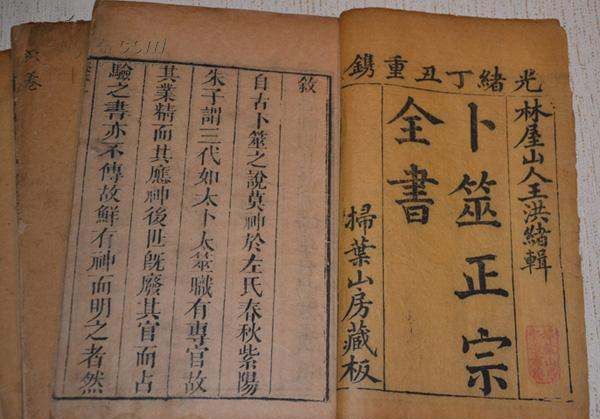 光緒丁丑重鐫
林屋山人王洪緒輯
卜筮正宗
全書
掃葉山房藏板
敘
自古卜筮之說莫神於左氏春秋紫陽
朱子謂三代如太卜太筮職有專官故
其業精而其應神後世既廢其官而占
驗之書亦不傳故鮮有神而明之者然
卷